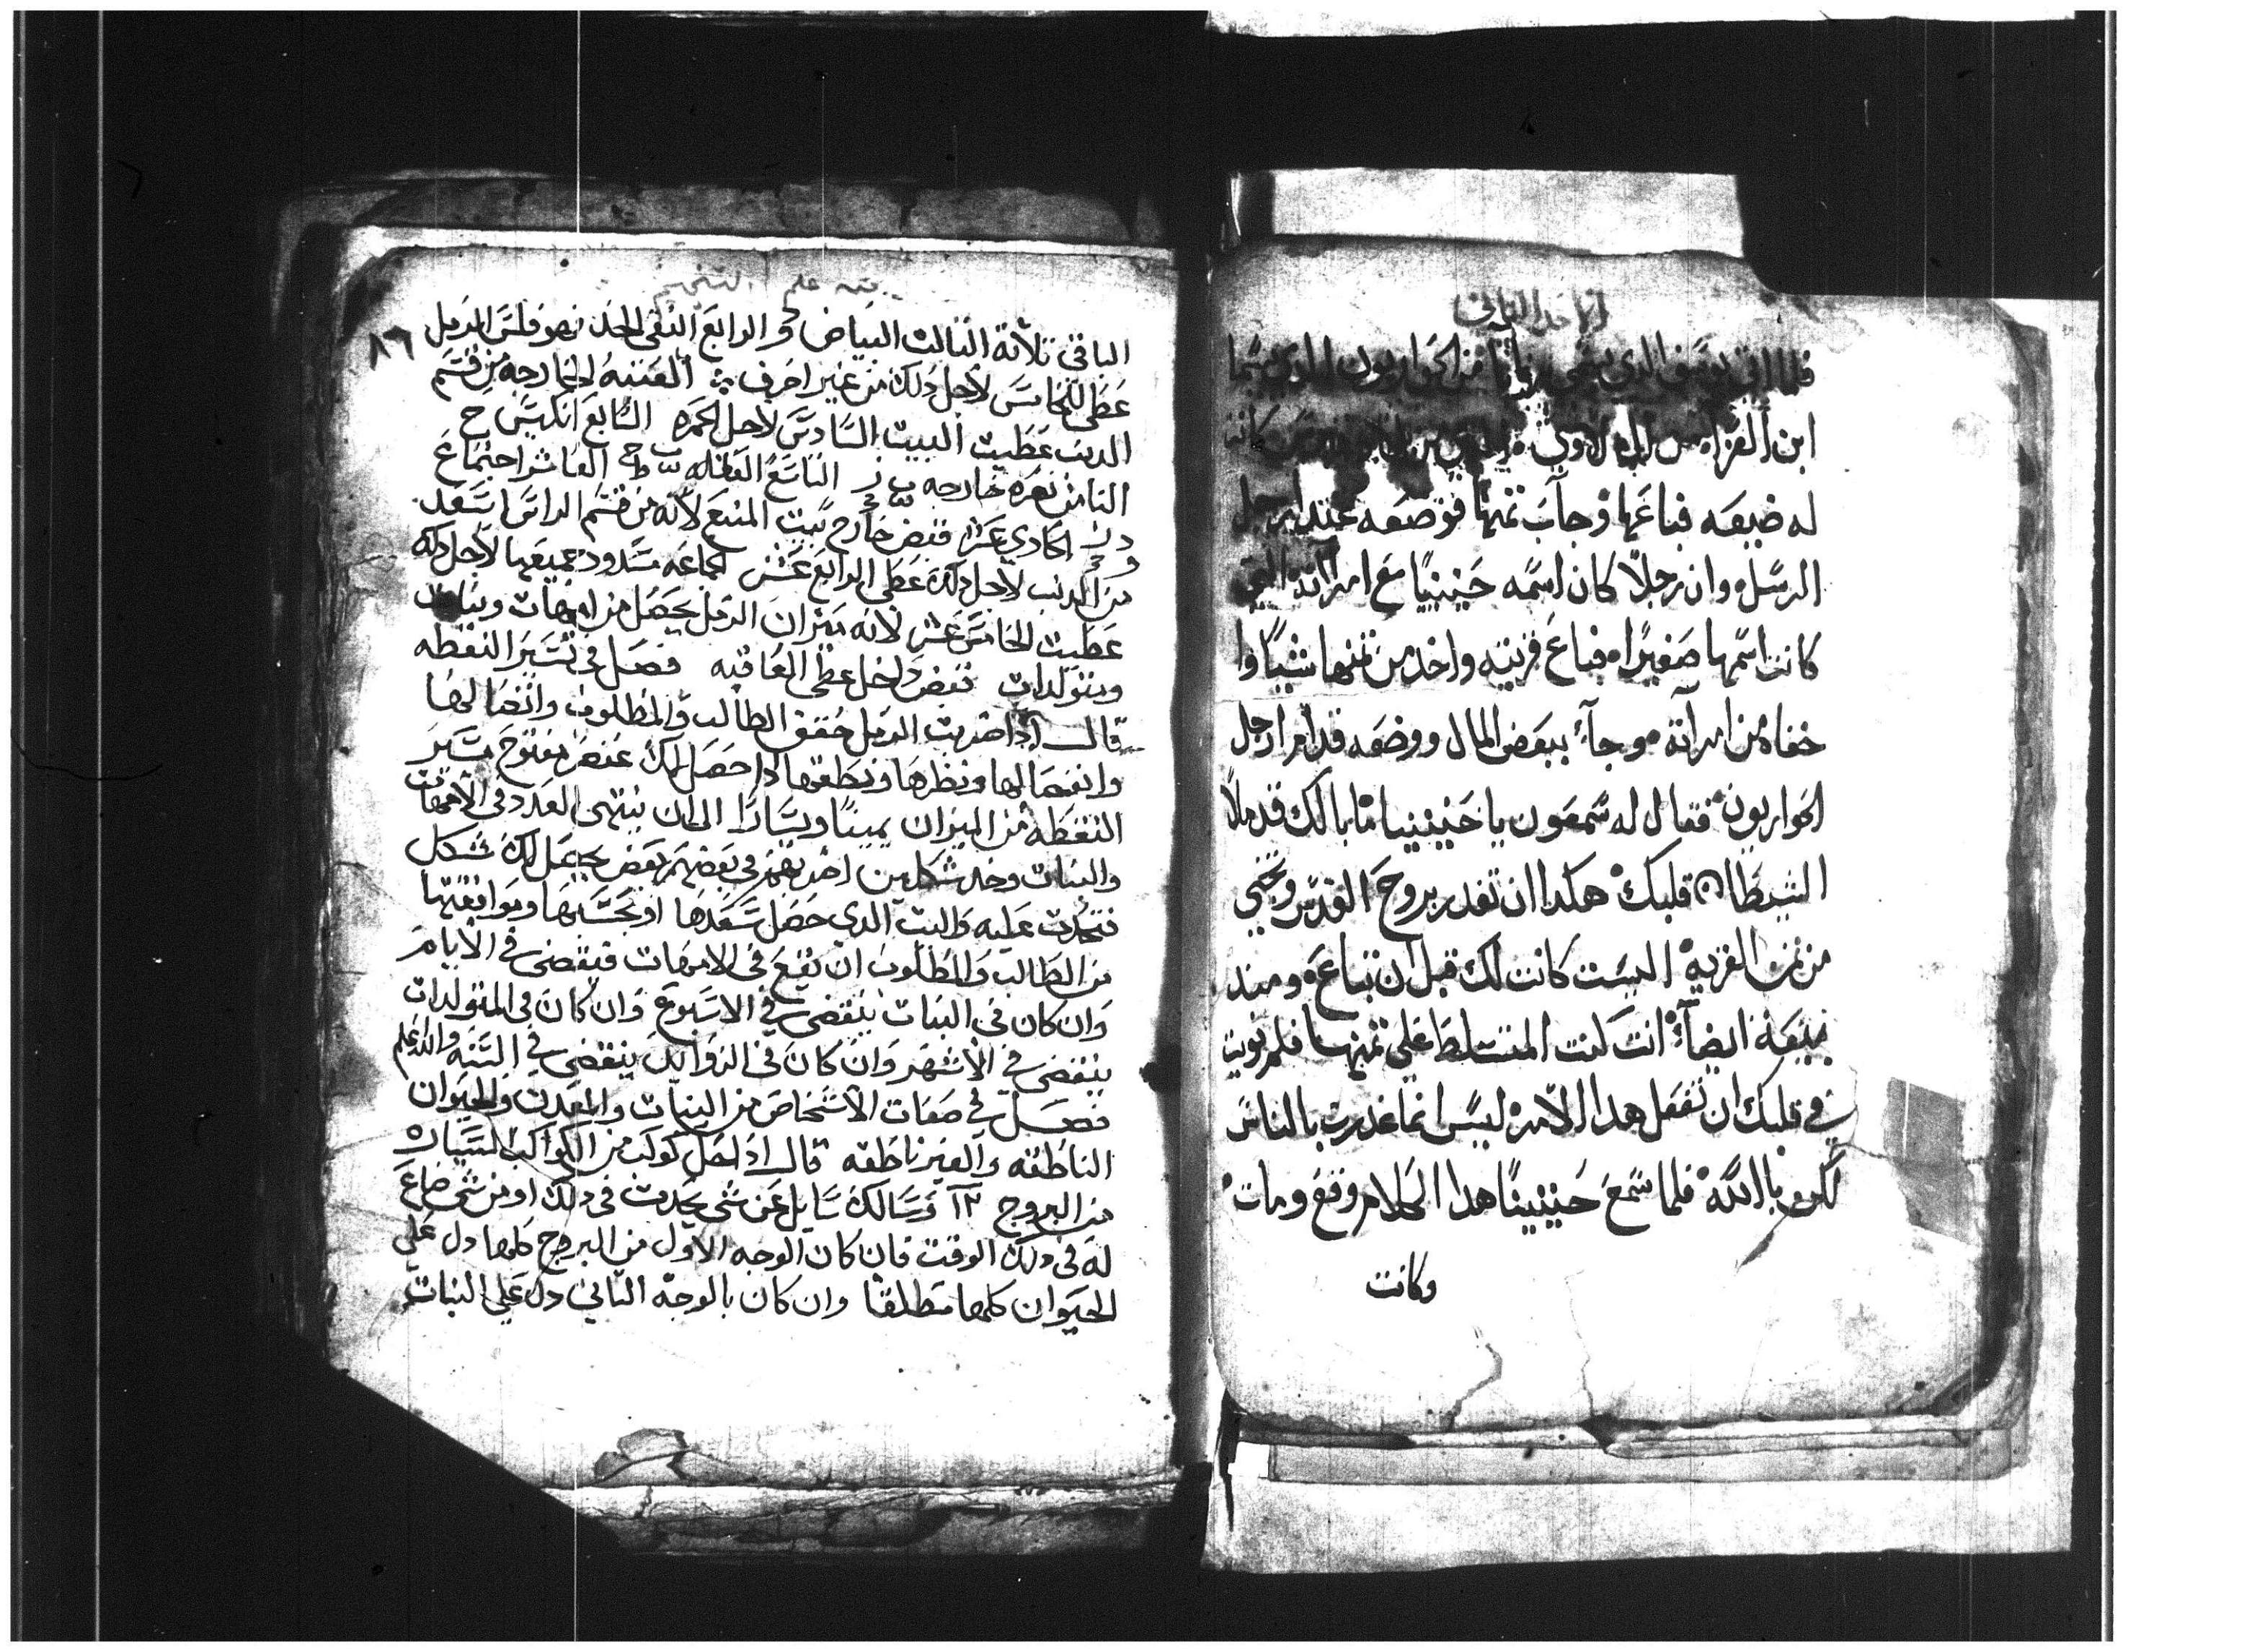 الاحد الثاني
فلما يوسف الدي سمي برنابا من الحواريون الدي
ابن العزا من لاوي كانه
له ضيعه فباعها وجاب تمنها فوضعه عند ارجل
الرسل وان رجلاً كان اسمه حنينيا مع امراته التي
كانت اسمها صفيرا فباع قريته واخد من تمنها شيا وا
خفاه من امراته وجآ ببعض المال ووضعه قدام ارجل
الحواريون فقال له سمعون يا حنينيا ما بالك قد ملا
الشيطان قلبك هكدا ان تغدر بروح القدس وتخبي
من تمن القريه اليست كانت لك قبل ان تباع ومند
بيعة ايضا انت كنت المتسلط علي تمنها فلم نويت
في قلبك ان تفعل هدا الامر ليس انما غدرت بالناس
لكن باالله فلما سمع حنينيا هدا الكلام وقع ومات
وكانت
بقيه علم التنجيم
٨٦
الباقي تلاتة التالت البياض والرابع النقي الخد نهو قلت الرمل
عطي للخامس لاجل دلك من غير احرف العتبه الخارجه من قسم
الدنب عطيت البيت السادس لاجل الحمره السابع انكيس ح
التامن نصره خارجه التاسع العقله العاشر اجتماع
الحادي عشر قبض خارج بيت المنبع لانه من قسم الراس اسعد
من الدنب لاجل دلك عطي الرابع عشر الجماعه مسدود جميعها لاجل دلك
عطيت الخامس عشر لانه ميزان الرمل يحصل من امهات وبنات
ومتولدات قبض داخل عطي العاقبه فصل في تسير النقطه
قال ادا ضربت الرمل حقق الطالب والمطلوب واتصالها
وانفصالها ونظرها ونطقها ادا حصل لك عنصر مفتوح سير
النقطه من الميزان يمينًا ويسارا الي ان ينتهي العدد في الامهات
والبنات وخد شكلين اضربهم في بعضهم بعض يحصل لك شكل
فتحدت عليه والبيت الدي حصل سعدها او نحسها وموافقتها
من الطالب والمطلوب ان يقع في الامهات فيقضي في الايام
وان كان في البنات ينقضي في الاسبوع وان كان في المتولدات
ينقضي في الاشهر وان كان في الزوايد ينقضي في السنه والله اعلم
فصل في صفات الاشخاص من النبات والمعدن والحيوان
الناطقه والغير ناطقه قال ادا حصل كوكب من الكواكب السياره
من البروج ١٢ وسالك سايل عن شي يحدت في دلك او من شي ضاع
له في دلك الوقت فان كان الوجه الاول من البروج كلها دل علي
الحيوان كلها مطلقا وان كان بالوجه التاني دل علي النبات